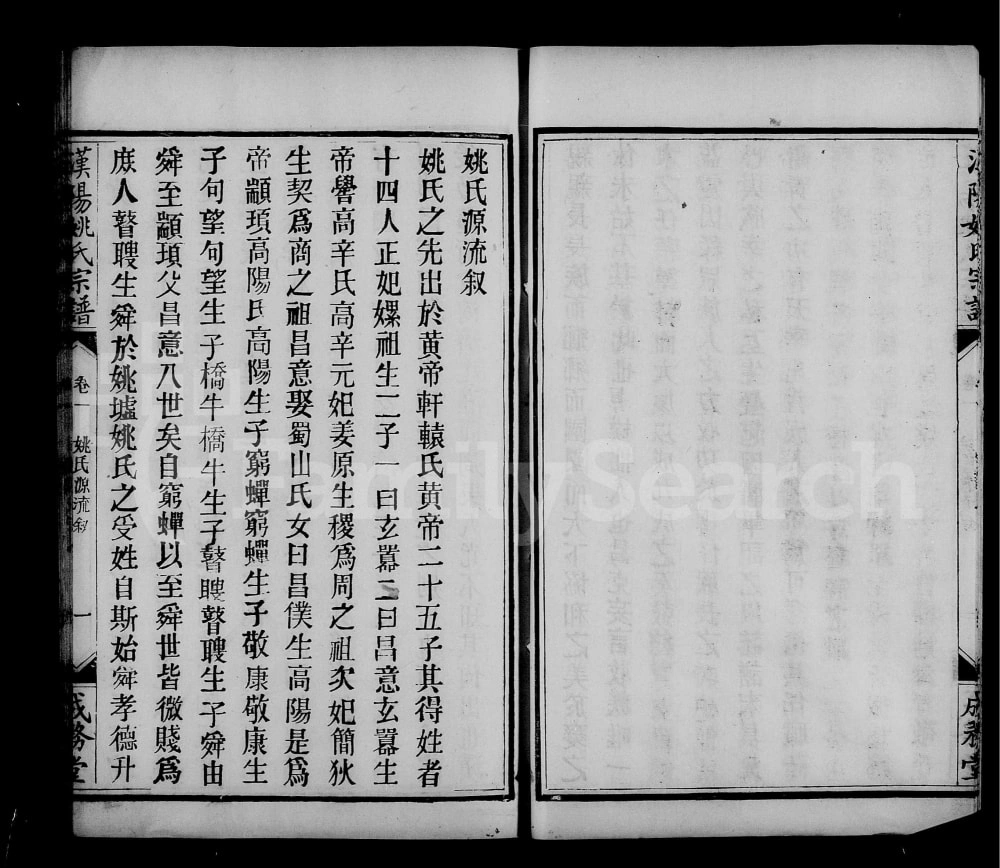 宗
成務堂
姚氏源流叙
姚氏之先出於黄帝軒轅氏黄帝二十五子其得姓者
十四人正妃嫘祖生二子一曰玄囂二曰昌意玄囂生
帝嚳高辛氏高辛元妃姜原生稷爲周之祖次妃簡狄
生契爲商之祖昌意娶蜀山氏女曰昌僕生高陽是爲
帝顓頊高陽氏高陽生子窮蟬窮蟬生子敬康敬康生
子句望句望生子橋牛橋牛生子瞽瞍瞽瞍生子舜由
舜至顓頊父昌意八世矣自窮蟬以至舜世皆微賤爲
庶人瞽瞍生舜於姚墟姚氏之受姓自斯始舜孝德升
漢陽姚氏宗譜
卷一
姚氏源流叙
一
成務堂
FamilySearch